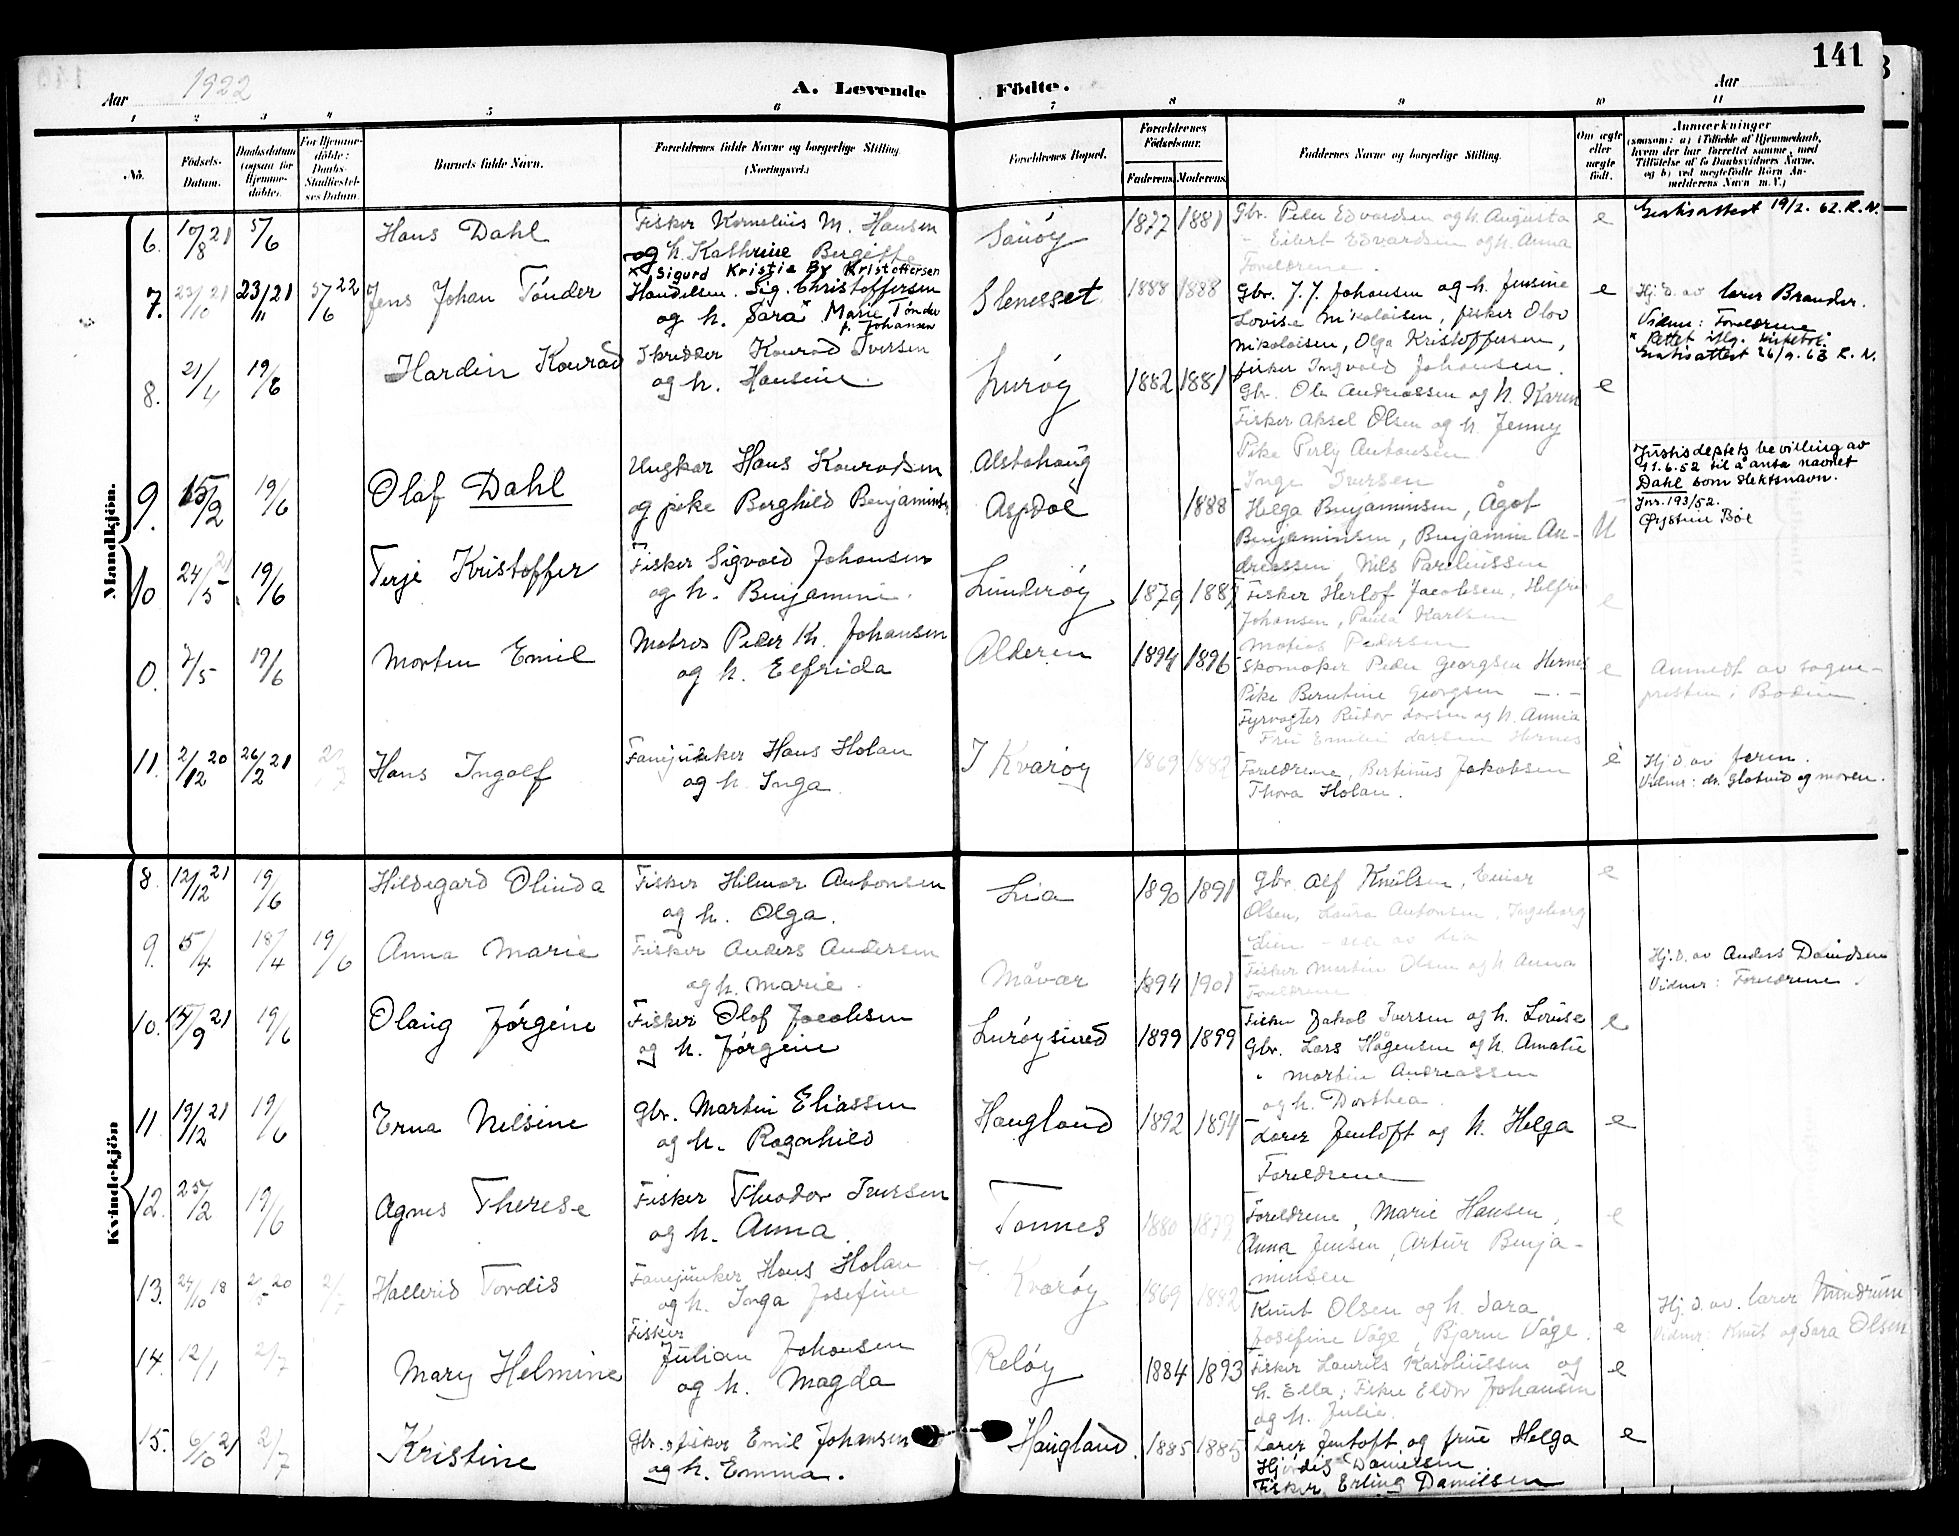 141
Aar 1922
A. Levende Födte.
Aar
1 2 3 4 5 6 7 8 9 10 11
No.
Födsels-Datum.
Daabsdatum (ogsaa for Hjemmedöbte).
For Hjemmedöbte: Daabs-Stadfæstelses Datum.
Barnets fulde Navn.
Forældrenes fulde Navne og borgerlige Stilling (Næringsvei.)
Forældrenes Bopæl.
Forældrenes Födselsaar.
Faderens Moderens
Faddernes Navne og borgerlige Stilling.
Om ægte eller uægte födt.
Anmærkninger
Mandkjön.
6. 10/8 21 5/6 Hans Dahl
Fisker Kornelius M. Hansen
og h. Kathrine Bergitte
1877 1881
Gbr. Peder Edvardsen og h. Augusta
- Eilert Edvardsen og h. Anna
Foreldrene.
e
Gratisattest 19/2. 62. R. N.
7. 23/10 21 23/11 21 5/6 22 Jens Johan Tönder
x Sigurd Kristie By Kristoffersen
Handelsm. Sig. Christoffersen
og h. Sara x Marie Tønder
f. Johansen
Slenesset 1888 1888
Gbr. J. J. Johansen og h. Jensine
Lovise Nikolaisen, fisker Olov
Nikolaisen, Olga Kristoffersen,
fisker Ingvald Johansen.
e
Hj. d. av lærer Brander.
Vidner: Foreldrene
x Rettet iflg. kirkebok.
Gratisattest 26/9. 63 R. N.
8. 21/4 19/6 Hardin Konrad
Skredder Konrad Iversen
og h. Hansine.
Lurøy 1882 1881
Gbr. Ole Andreassen og h. Karen
Fisker Aksel Olsen og h. Jenny
Pike Perly Antonsen
Inga Iversen
e
9. 15/2 19/6 Olaf Dahl
Ungkar Hans Konradsen
og pike Borghild Benjamins.
Alstahaug
Aspdal
1888
Helga Benjaminsen, Ågot
Benjaminsen, Benjamin An-
dreassen, Nils Pareliussen
U
Justisdeptets bevilling av
11.6.52 til å anta navnet
Dahl som slektsnavn.
Jnr. 193/52.
Øystein Bøe
10 24/5 21 19/6 Terje Kristoffer
Fisker Sigvald Johansen
og h. Benjamine.
Lunderøy 1879 1887
Fisker Herlof Jacobsen, Helfri
Johansen, Paula Karlsen
Matias Pedersen
e
0. 7/5 19/6 Morten Emil
Matros Peder Kr. Johansen
og h. Elfrida
Alderen 1894 1896
Skomaker Peder Georgsen Hernes
Pike Berntine Georgsen — · —
Fyrvogter Reidar Larsen og h. Annia
Fru Emilie Larsen Hernes
e
Anmeldt av sogne-
presten i Bodin.
11. 2/12 20 26/2 21 2/7 Hans Ingolf
Fanejunker Hans Holan
og h. Inga
I Kvarøy 1869 1882
Foreldrene, Bertinus Jakobsen
Thora Holan.
e
Hj. d. av faren.
Vidner: dr. Glatved og moren.
Kvindekjön
8. 12/12 21 19/6 Hildegard Olinda
Fisker Hilmar Antonsen
og h. Olga.
Lia 1890 1891
Gbr. Alf Knutsen, Einar
Olsen, Laura Antonsen, Ingeborg
Lien - alle av Lia
e
9. 15/4 18/4 19/6 Anna Marie
Fisker Anders Andersen
og h. Marie.
Måvær 1894 1901
Fisker Martin Olsen og h. Anna
Foreldrene.
Hj. d. av Anders Davidsen
Vidner: Foreldrene.
10. 15/9 21 19/6 Olaug Jørgine
Fisker Olaf Jacobsen
og h. Jørgine
Lurøysund 1899 1899
Fisker Jakob Iversen og h. Lovise
Gbr. Lars Hågensen og h. Amalie
" Martin Andreassen
og h. Dorthea.
e
11. 19/12 21 19/6 Erna Nilsine
Gbr. Martin Eliassen
og h. Ragnhild
Haugland 1892 1894
Lærer Jentoft og h. Helga
Foreldrene
e
12. 25/2 19/6 Agnes Therese
Fisker Theodor Iversen
og h. Anna.
Tonnes 1880 1879
Foreldrene, Marie Hansen,
Anna Jensen, Artur Benja-
minsen
e
13. 24/10 18 2/5 20 2/7 Hallerid Tordis
Fanejunker Hans Holan
og h. Inga Josefine
I Kvarøy 1869 1882
Knut Olsen og h. Sara
Josefine Våge, Bjarne Våge.
e
Hj. d. av. lærer
Vidner: Knut og Sara Olsen
14. 12/1 2/7 Mary Helmine
Fisker
Julian Johansen
og h. Magda
Reløy 1884 1893
Fisker Laurits Karoliussen og
h. Ella, Fisker Eldor Johansen
og h. Julie.
e
15. 6/10 21 2/7 Kristine
Gbr. & fisker Emil Johansen
og h. Emma.
Haugland. 1885 1885
Lærer Jentoft og frue Helga
Hjørdis Danielsen
Fisker Erling Danielsen
e